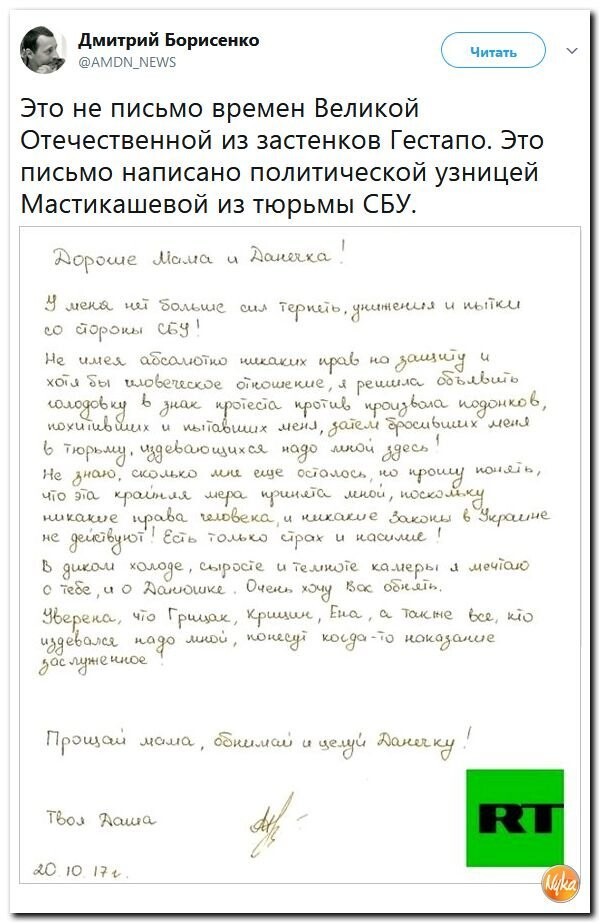 Дмитрий Борисенко
@AMDN_NEWS
Читать
Это не письмо времен Великой
Отечественной из застенков Гестапо. Это
письмо написано политической узницей
Мастикашевой из тюрьмы СБУ.
Дорогие Мама и Данечка!
У меня нет больше сил терпеть, унижения и пытки
со стороны СБУ!
Не имея абсолютно никаких прав на защиту и
хотя бы человеческое отношение, я решила объявить
голодовку в знак протеста против произвола подонков,
похитивших и пытавших меня, затем бросивших меня
в тюрьму, издевающихся надо мной здесь!
Не знаю, сколько мне еще осталось, но прошу понять,
что эта крайняя мера принята мной, поскольку
никакие права человека, и никакие Законы в Украине
не действуют! Есть только страх и насилие!
В диком холоде, сырости и темноте камеры я мечтаю
о тебе, и о Данюшке. Очень хочу Вас обнять.
Уверена, что Грицак, Крищин, Ена, а также все, кто
издевался надо мной, понесут когда-то наказание
заслуженное!
Прощай мама, обнимай и целуй Данечку!
Твоя Даша
20.10.17г.
RT
Nyka